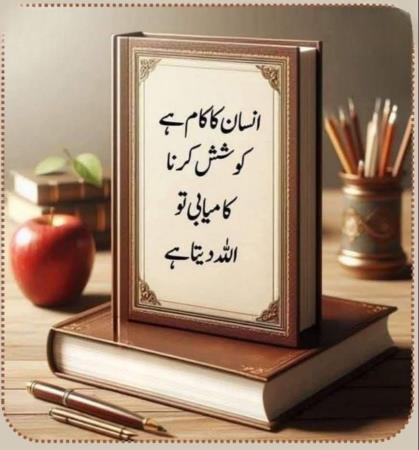 انسان کا کام ہے
کوشش کرنا
کامیابی تو
اللہ دیتا ہے